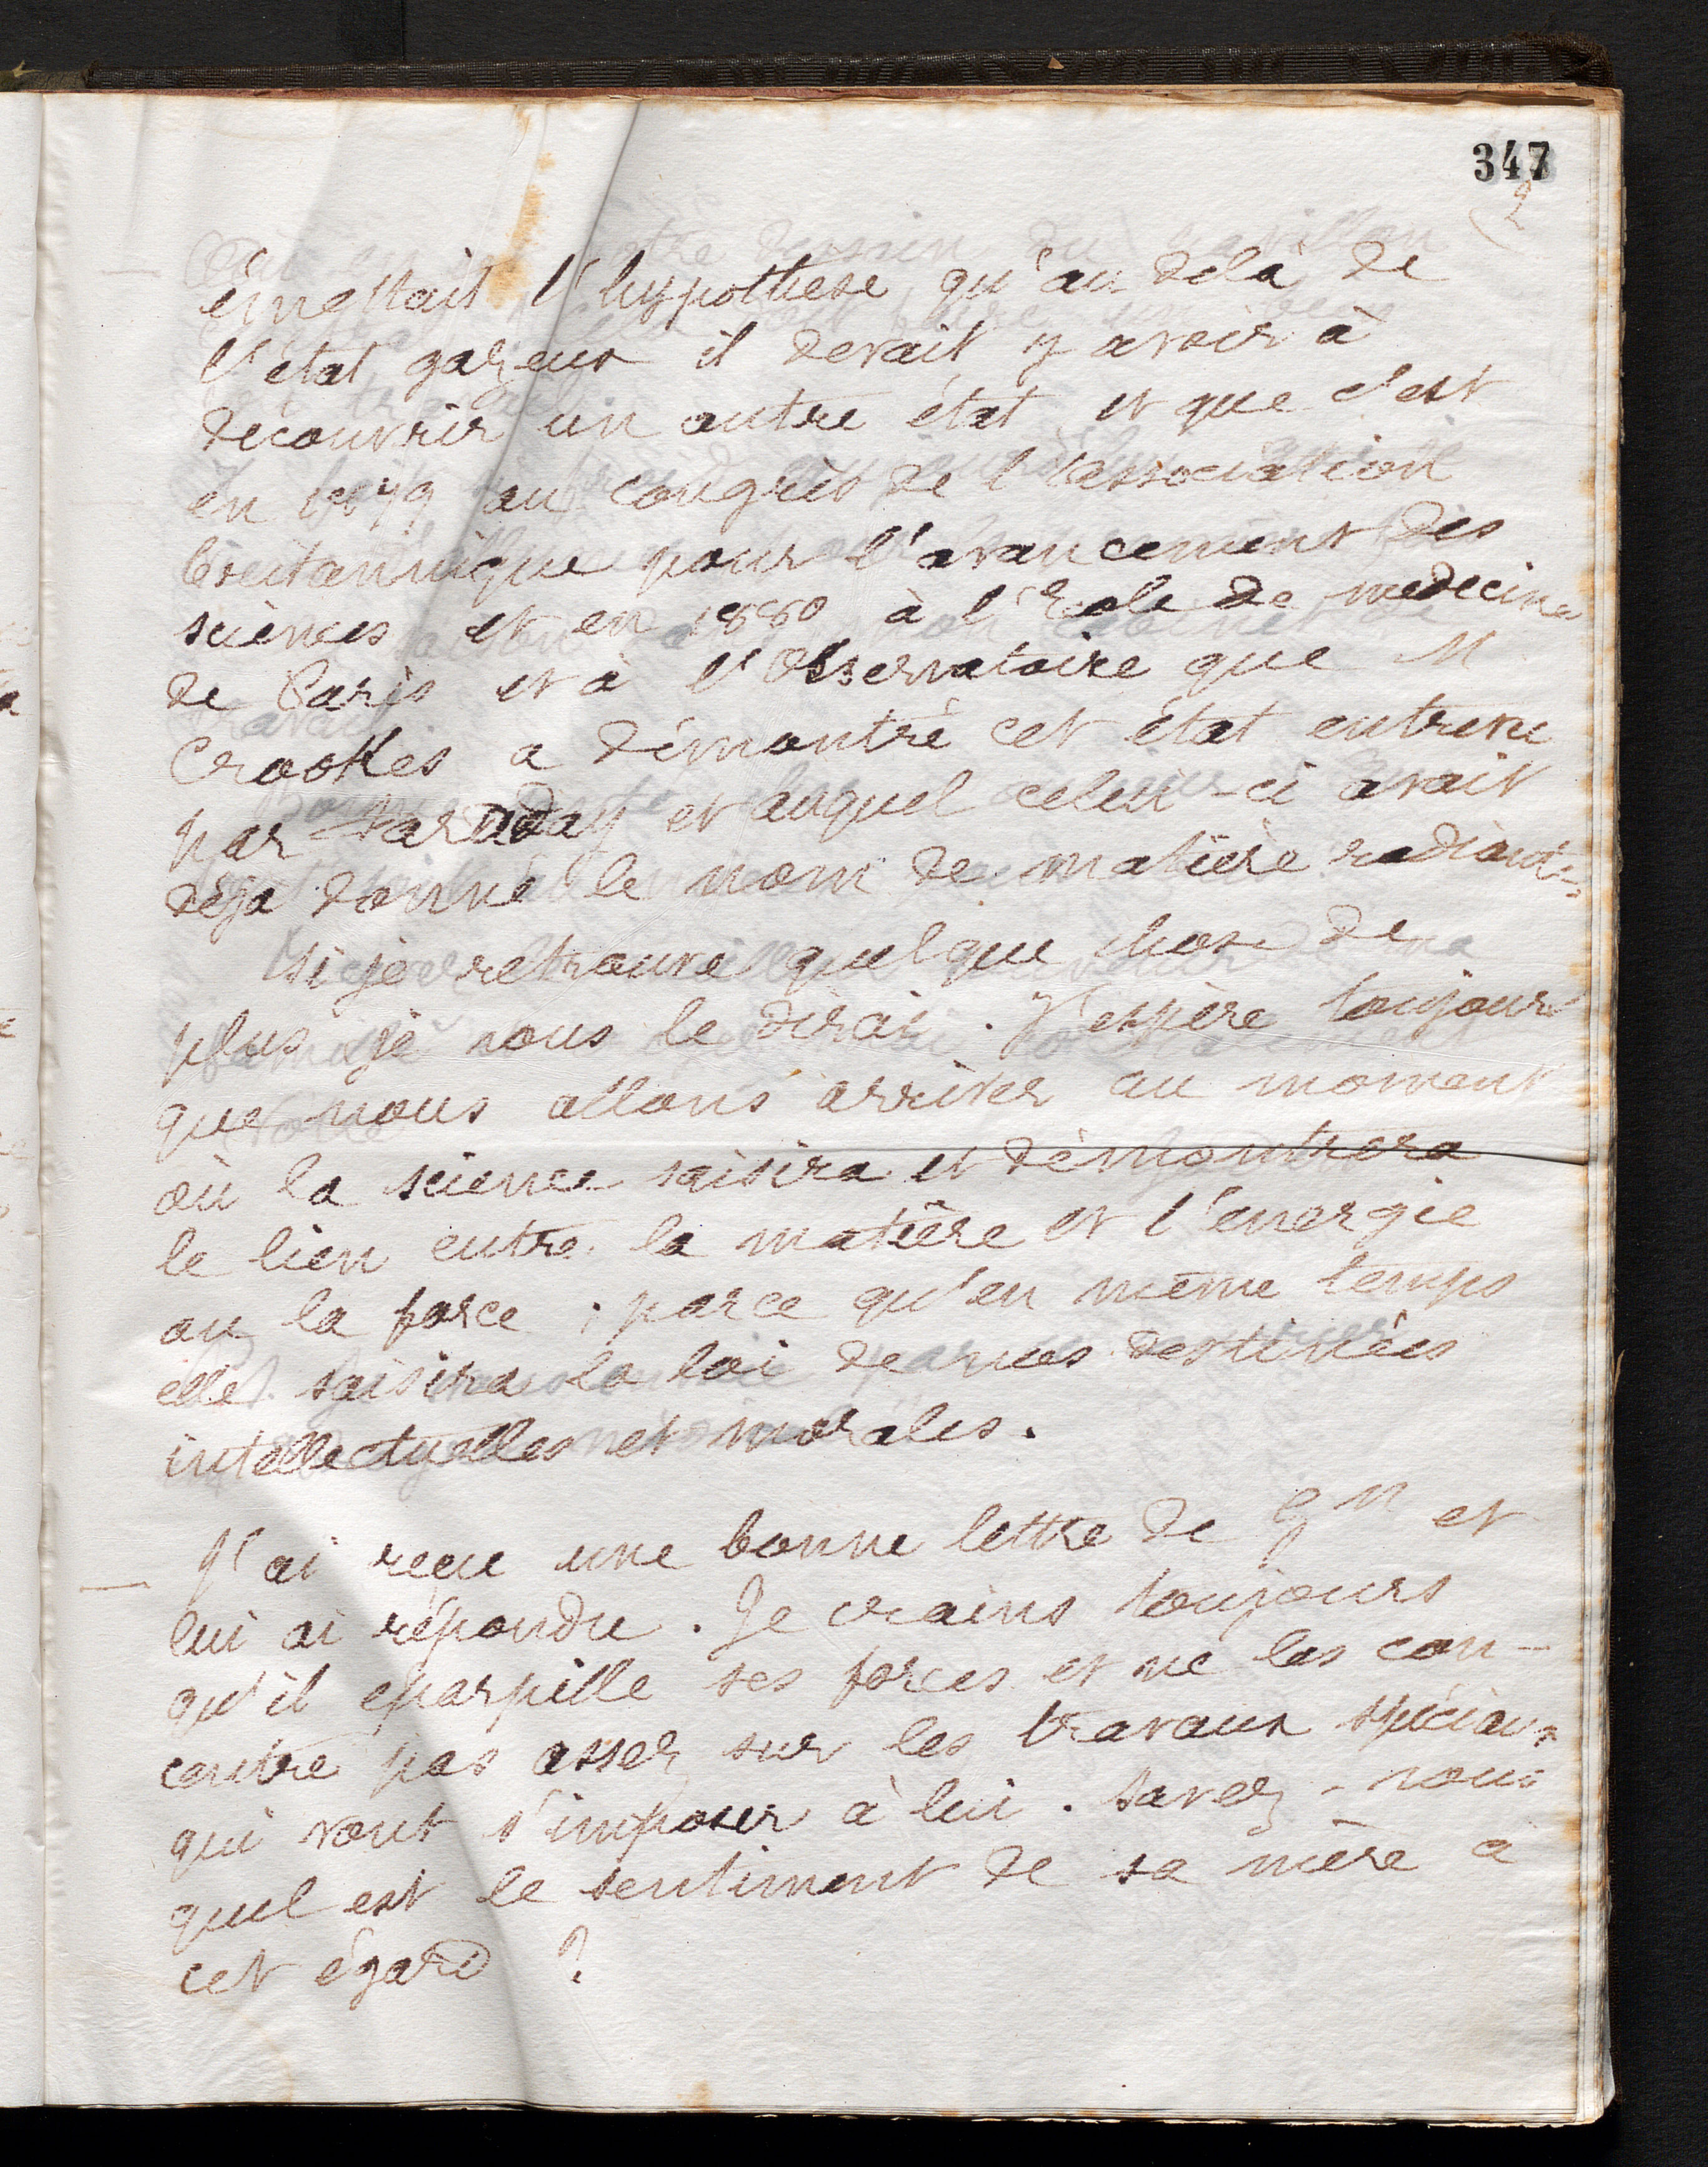 347
2
émettait l'hypothese qu'au delà de
l'état gazeux il devait y avoir à
découvrir un autre état et que c'est
en 1879 au congrès de l'association
britannique pour l'avancement des
sciences et en 1880 à l'Ecole de medecine
de Paris et à l'Observatoire que M
Crookes a démontré cet état entrevu
par Faraday et auquel celui-ci avait
déja donné le nom de matière radiante
Si je retrouve quelque chose de
plus je vous le dirai. J'espère toujours
que nous allons arriver au moment
où la science saisira et démontrera
le lien entre la matière et l'énergie
ou la force, parce qu'en même temps
elle saisira la loi de nos destinées
intellectuelles et morales.
J'ai reçu une bonne lettre de Gm et
lui ai répondu. Je crains toujours
qu'il eparpille ses forces et ne les con-
centre pas assez sur les travaux spéciaux
qui vont s'imposer à lui. Savez-vous
quel est le sentiment de sa mère à
cet égard ?